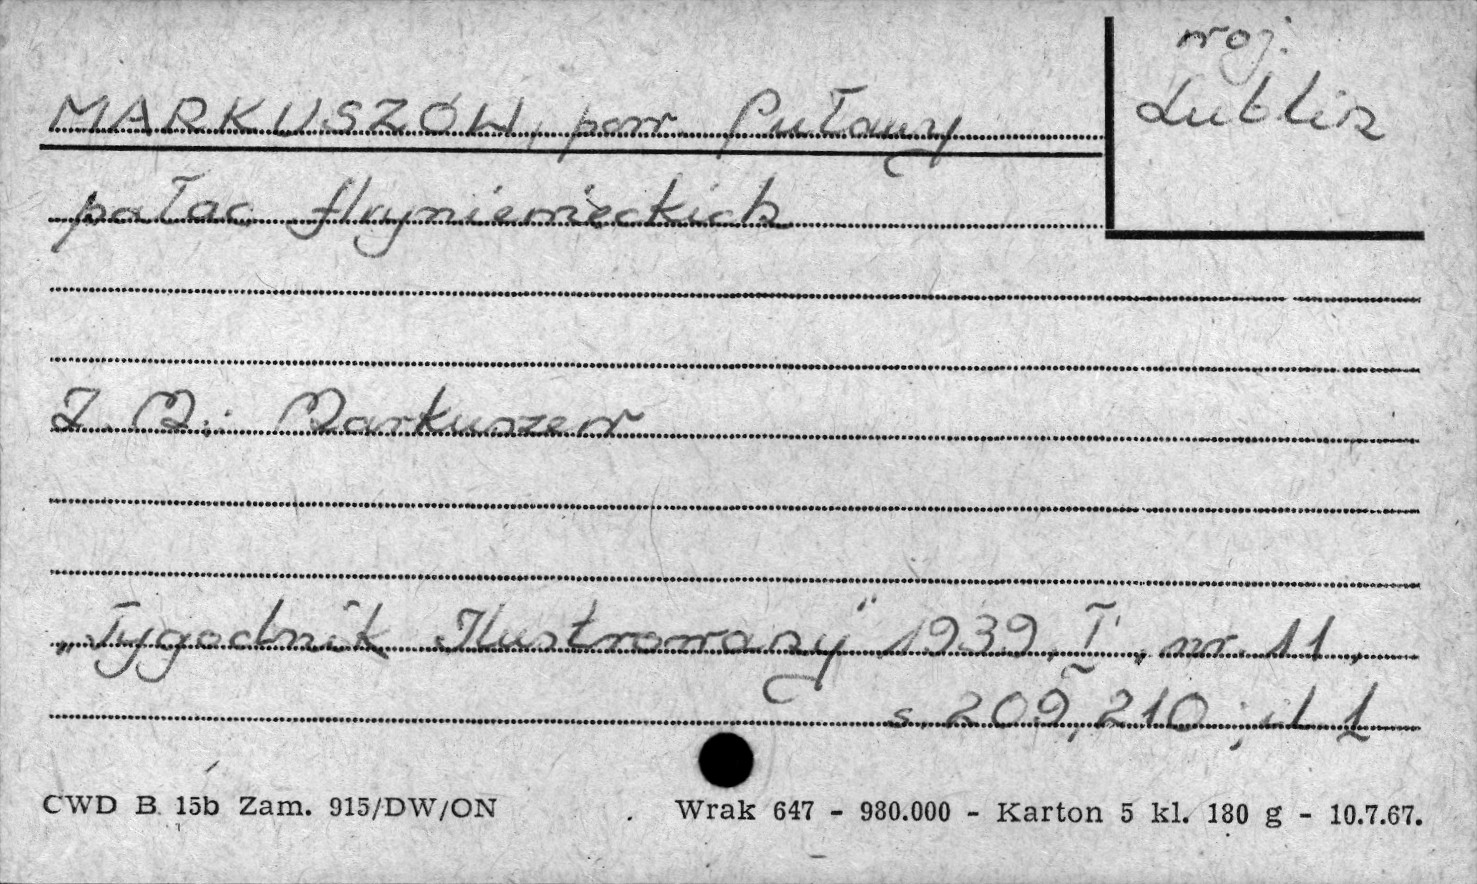 woj.
Lublin
MARKUSZÓW, pow. Puławy
pałac Hryniewieckich
Z. M.: Markuszew
„Tygodnik Ilustrowany" 1939, I, nr. 11,
s. 209, 210; il. 1
CWD B 15b Zam. 915/DW/ON Wrak 647 - 980.000 - Karton 5 kl. 180 g - 10.7.67.